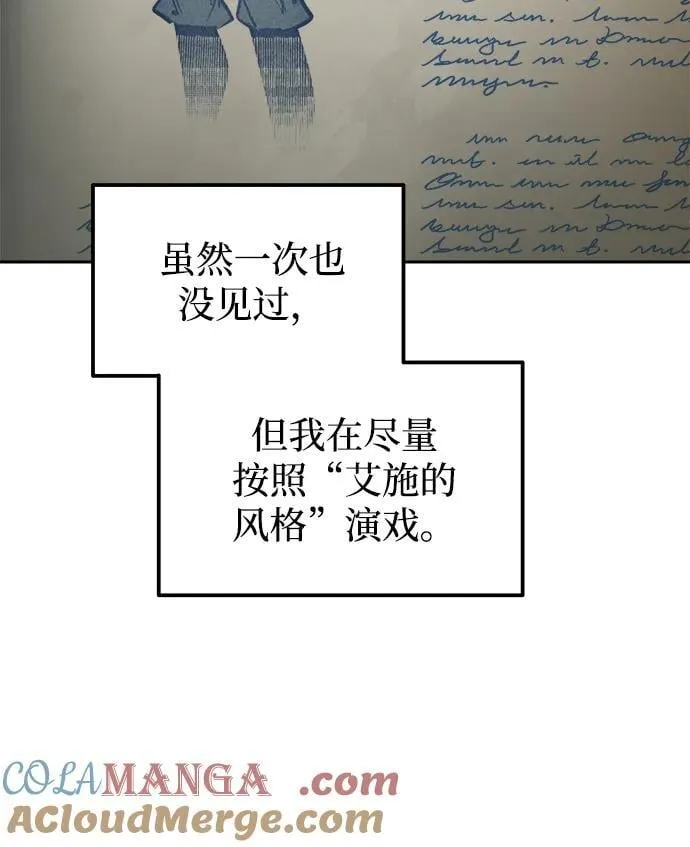 虽然一次也
没见过,
但我在尽量
按照“艾施的
风格”演戏。
COLAMANGA.com
AcloudMerge.com